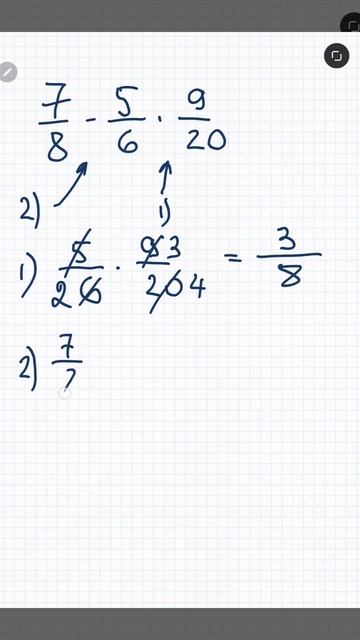 7/8 - 5/6 · 9/20
2) 1)
1) 5/2 6 · 9 3/20 4 = 3/8
2) 7/